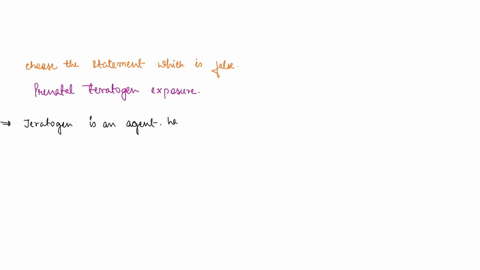 choose the statement which is false.
Prenatal teratogen exposure.
→ Teratogen is an agent. ha